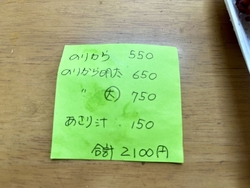 のりから 550
のりから明太 650
〃 大 750
あさり汁 150
合計 2100円